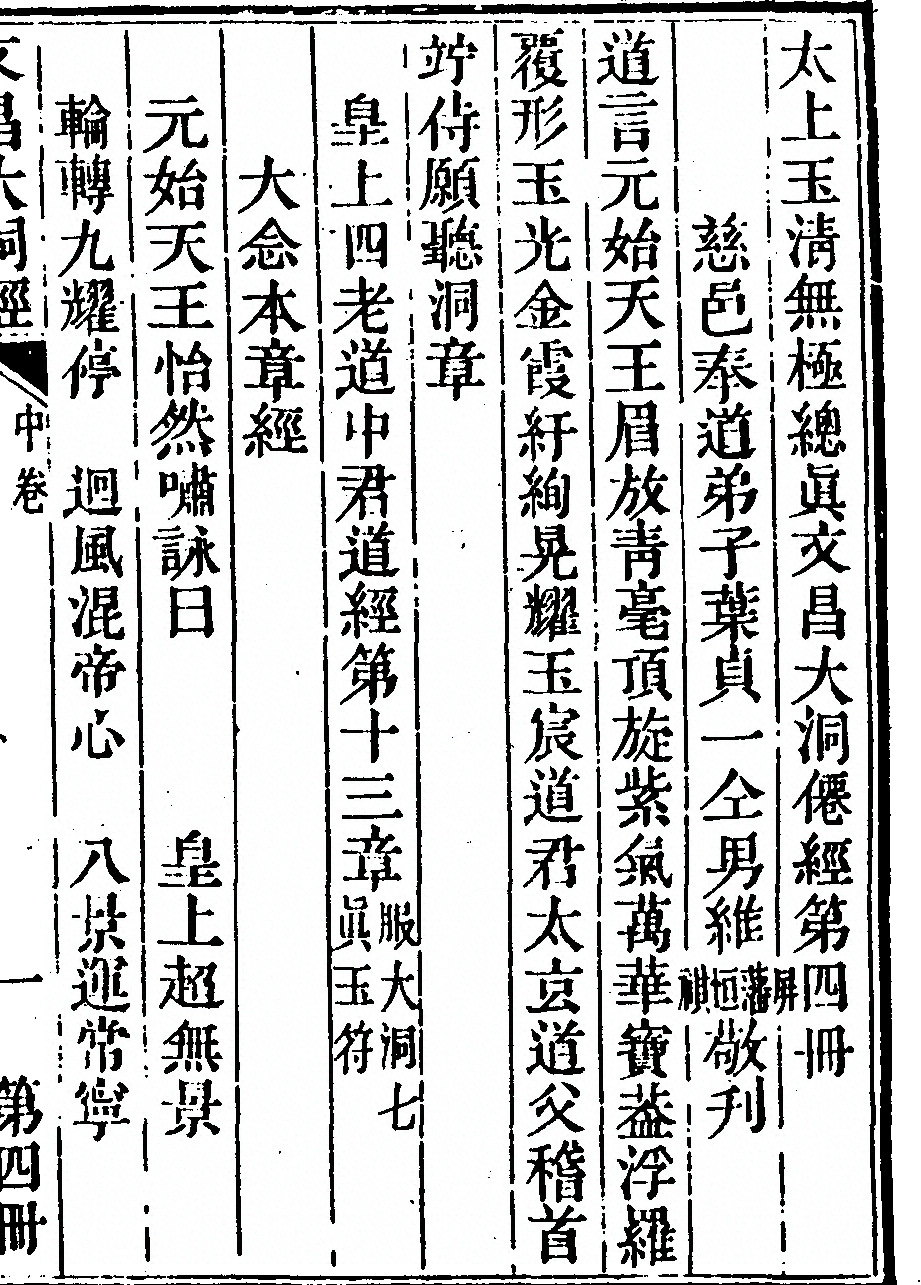 太上玉淸無極總眞文昌大洞僊經第四冊
慈邑奉道弟子葉貞一仝男維屏藩恒祺敬刋
道言元始天王眉放靑毫頂旋紫氣萬華寶葢浮羅
覆形玉光金霞紆絢晃耀玉宸道君太玄道父稽首
竚侍願聽洞章
皇上四老道中君道經第十三章服大洞七眞玉符
大念本章經
元始天王怡然嘯詠曰 皇上超無景
輪轉九耀停 迴風混帝心 八景運常寧
文昌大洞經 中卷 一 第四冊